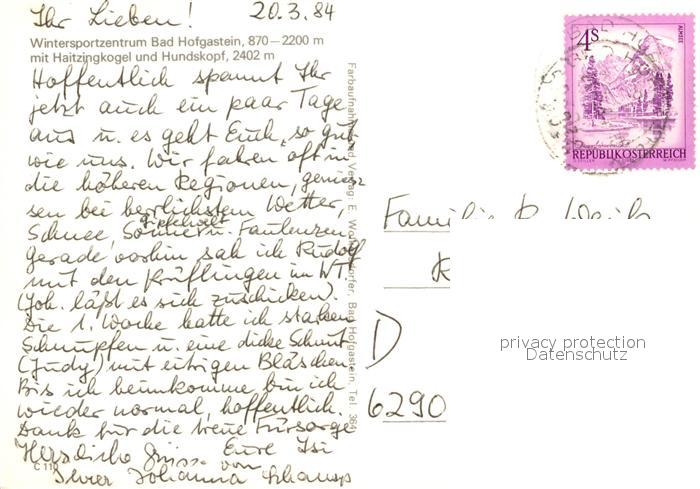 Ihr Lieben! 20.3.84
Wintersportzentrum Bad Hofgastein, 870–2200 m
mit Haitzingkogel und Hundskopf, 2402 m
Hoffentlich spannt Ihr
jetzt auch ein paar Tage
aus u. es geht Euch so gut
wie uns. Wir fahren oft in
die höheren Regionen, genies-
sen bei herrlichstem Wetter,
Schnee, Sonne u. Faulenzen.
Gerade vorhin sah ich Rudolf
mit den Prüflingen im
(Joh. läßt es sich zuschicken).
Die 1. Woche hatte ich starken
Schnupfen u. eine dicke
(Judy) mit eitrigen Bläschen.
Bis ich heimkomme bin ich
wieder normal, hoffentlich.
Dank für die treue Fürsorge
Herzliche Grüsse Eure Isi
von
Johanna
C 110
Farbaufnahme und Verlag: E. Bad Hofgastein, Tel. 364
4s
ALMSEE
REPUBLIK ÖSTERREICH
Familie
D
6290
privacy protection
Datenschutz